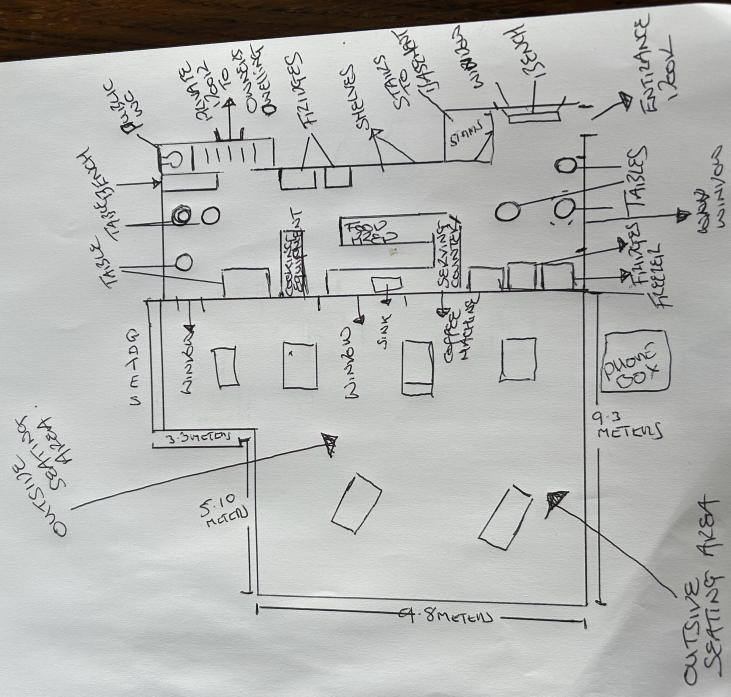 PUBLIC
WC
PRIVATE
DOOR
TO
OWNERS
DWELLING
FRIDGES
SHELVES
STAIRS
TO
BASEMENT
WINDOW
BENCH
ENTRANCE
DOOR
STAIRS
BENCH
TABLES
TABLE
COOKING
EQUIPMENT
FOOD
SERVING
COUNTER
TABLES
WINDOW
FRIDGES
FREEZER
WINDOW
WINDOW
SINK
COFFEE
MACHINE
PHONE
BOX
METERS
5.10
METERS
9.3
METERS
8 METERS
OUTSIVE
SEATING
AREA
OUTSIVE
SEATING AREA